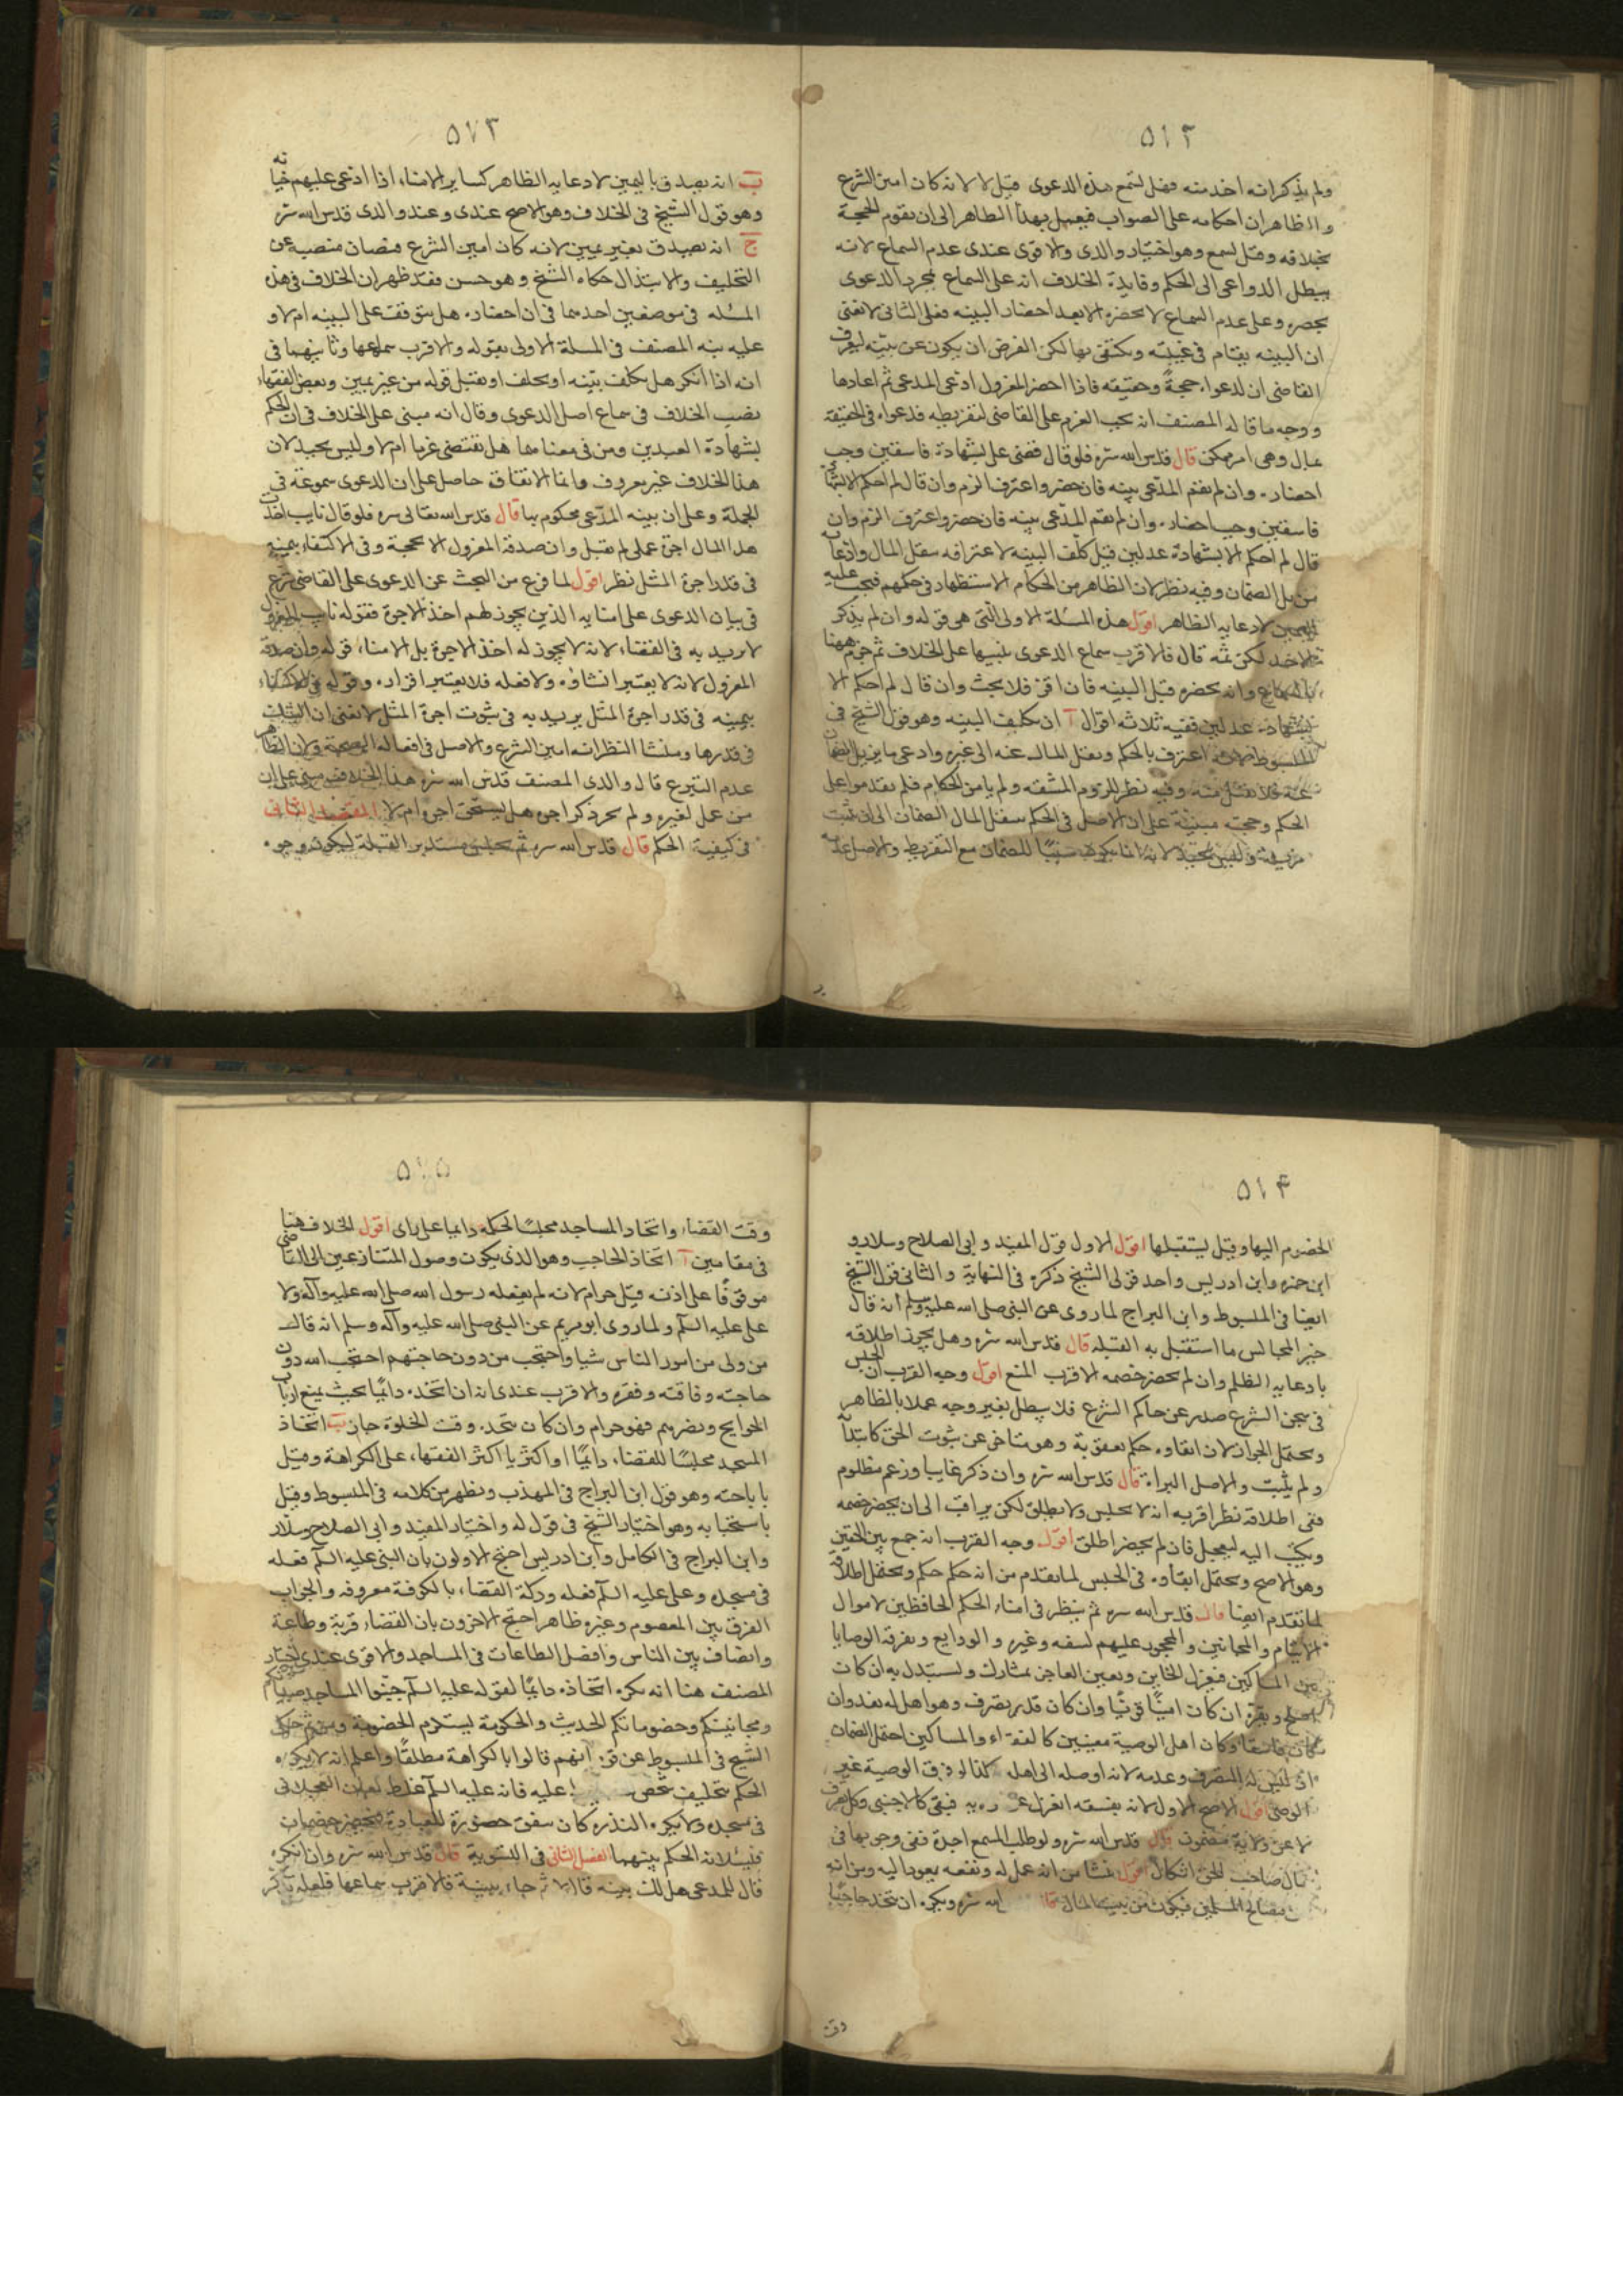 ٥١٢
ولم يذكر انه اخذ منه فهل تسمع هذه الدعوى قيل لا لانه كان امين الشرع
والظاهر ان احكامه على الصواب فيعمل بهذا الظاهر الى ان يقوم الحجة
بخلافه وقيل تسمع وهو اختيار والدى والاقوى عندى عدم السماع لانه
يبطل الدواعى الى الحكم وفايدة الخلاف انه على السماع بمجرد الدعوى
يحضره وعلى عدم السماع لا يحضره الا بعد احضار البينه فعلى الثانى لا نعنى
ان البينه يقام فى غيبته ويكتفى بها لكن الغرض ان يكون عن بينه ليعرف
القاضى ان لدعواه حجةً وحقيقه فاذا احضر المعزول ادعى المدعى ثم اعادها
ووجه ما قاله المصنف انه يجب الغرم على القاضى لتفريطه فدعواه فى الحقيقة
بمال وهى امر ممكن قال قدس الله سره فلو قال قضى على بشهادة فاسقين وجب
احضاره وان لم يقم المدعى بينه فان حضر واعترف الزم وان قال لم احكم الا بشهادة
فاسقين وجب احضاره وان لم يقم المدعى بينه فان حضر واعترف الزم وان
قال لم احكم الا بشهادة عدلين قيل كلف البينه لاعترافه بنقل المال وادعاء
مزيل الضمان وفيه نظر لان الظاهر من الحكام الاستظهار فى حكمهم فيجب عليه
اليمين لادعايه الظاهر اقول هذه المسئلة الاولى التى هى قوله وان لم يذكر
الاخذ لكن ثمه قال فالاقرب سماع الدعوى بنيتها على الخلاف ثم جزم ههنا
بالسماع وانه يحضره قبل البينه فان اقر فلا بحث وان قال لم احكم الا
بشهادة عدلين ففيه ثلاثه اقوال آ ان يكلف البينه وهو قول الشيخ فى
المبسوط لانه اعترف بالحكم ونقل المال عنه الى غيره وادعى ما يزيل الضمان
عنه فلا يقبل منه وفيه نظر للزوم المشقه ولم يامن الحكام فلم يقدموا على
الحكم وحجته مبنية على ان الاصل فى الحكم بنقل المال الضمان الى ان يثبت
مزيله وليس بجيد لانه انما يكون سببًا للضمان مع التفريط والاصل عدمه
٥٧٣
ب انه يصدق باليمين لادعايه الظاهر كساير الامناء اذا ادعى عليهم خيانه
وهو قول الشيخ فى الخلاف وهو الاصح عندى وعند والدى قدس الله سره
ج انه يصدق بغير يمين لانه كان امين الشرع فيصان منصبه عن
التحليف والابتذال حكاه الشيخ وهو حسن فقد ظهر ان الخلاف فى هذه
المسئله فى موضعين احدهما فى ان احضاره هل يتوقف على البينه ام لا و
عليه نبه المصنف فى المسئلة الاولى بقوله والاقرب سماعها وثانيهما فى
انه اذا انكر هل يكلف بينه او يحلف او يقبل قوله من غير يمين وبعض الفقهاء
نصب الخلاف فى سماع اصل الدعوى وقال انه مبنى على الخلاف فى ان الحكم
بشهادة العبدين ومن فى معناهما هل تقتضى غرما ام لا وليس بجيد لان
هذا الخلاف غير معروف وانما الاتفاق حاصل على ان الدعوى مسموعة فى
الجملة وعلى ان بينه المدعى محكوم بها قال قدس الله تعالى سره فلو قال نايب اخذت
هذا المال اجرة عملى لم يقبل وان صدقه المعزول الا بحجة وفى الاكتفاء بيمينه
فى قدر اجرة المثل نظر اقول لما فرغ من البحث عن الدعوى على القاضى شرع
فى بيان الدعوى على امنايه الذين يجوز لهم اخذ الاجرة فقوله نايب المعزول
لا يريد به فى القضاء لانه لا يجوز له اخذ الاجرة بل الامناء قوله وان صدقه
المعزول لانه لا يعتبر انشاؤه ولا فعله فلا يعتبر اقراره وقوله فى الاكتفاء
بيمينه فى قدر اجرة المثل يريد به فى ثبوت اجرة المثل لا نعنى ان البحث
فى قدرها ومنشا النظر انه امين الشرع والاصل فى افعاله الصحة ولان الظاهر
عدم التبرع قال والدى المصنف قدس الله سره هذا الخلاف مبنى على ان
من عمل لغيره ولم يجر ذكر اجرة هل يستحق اجرة ام لا المقصد الثانى
فى كيفية الحكم قال قدس الله سره ثم يجلس مستدبر القبلة ليكون وجوه
٥١٤
الخصوم اليها وقيل يستقبلها اقول الاول قول المفيد وابى الصلاح وسلار و
ابن حمزه وابن ادريس واحد قولى الشيخ ذكره فى النهاية والثانى قول الشيخ
ايضا فى المبسوط وابن البراج لما روى عن النبى صلى الله عليه وسلم انه قال
خير المجالس ما استقبل به القبله قال قدس الله سره وهل يجوز اطلاقه
بادعايه الظلم وان لم يحضر خصمه الاقرب المنع اقول وجه القرب ان الحبس
فى سجن الشرع صدر عن حاكم الشرع فلا يبطل بغير وجه عملا بالظاهر
ويحتمل الجواز لان ابقاوه حكم بعقوبة وهو متاخر عن ثبوت الحق كابتداء
ولم يثبت والاصل البراءة قال قدس الله سره وان ذكر غايبا وزعم مظلوم
ففى اطلاقه نظر اقربه انه لا يحبس ولا يطلق لكن يراقب الى ان يحضر خصمه
ويكتب اليه ليعجل فان لم يحضر اطلق اقول وجه القرب انه جمع بين الحقين
وهو الاصح ويحتمل ابقاوه فى الحبس لما تقدم من انه حكم حكم ويحتمل اطلاقه
لما تقدم ايضا قال قدس الله سره ثم ينظر فى امناء الحكم الحافظين لاموال
الايتام والمجانين والمحجور عليهم لسفه وغيره والودايع وتفرقة الوصايا
بين المساكين فيعزل الخاين ويعين العاجز بمشارك ويستبدل به ان كان
اصلح ويقره ان كان امينًا قويًا وان كان قد تصرف وهو اهل له نفذ وان
كان فاسقا وكان اهل الوصية معينين كالفقراء والمساكين احتمل الضمان
اذ ليس له التصرف وعدمه لانه اوصله الى اهله كذا لو فرق الوصية غير
الوصى اقول الاصح الاول لانه بفسقه انعزل فبقى كالاجنبى وكل تصرف
لا عن ولاية مضمون قال قدس الله سره ولو طلب المسمع اجرة ففى وجوبها فى
مال صاحب الحق اشكال اقول ينشا من انه عمل له ونفعه يعود اليه ومن انه
من مصالح المسلمين فيكون من بيت المال قال الله سره ويكره ان يتخذ حاجبًا
٥١٥
وقت القضاء واتخاذ المساجد مجلسًا للحكم دايما على راى اقول الخلاف هنا
فى مقامين آ اتخاذ الحاجب وهو الذى يكون وصول المتنازعين الى القاضى
موقوفًا على اذنه قيل حرام لانه لم يفعله رسول الله صلى الله عليه وآله ولا
على عليه السلم ولما روى ابو مريم عن النبى صلى الله عليه وآله وسلم انه قال
من ولى من امور الناس شيا واحتجب من دون حاجتهم احتجب الله دون
حاجته وفاقته وفقره والاقرب عندى انه ان اتخذه دايمًا بحيث يمنع ارباب
الحوايج ويضر بهم فهو حرام وان كان يتخذه وقت الخلوة جاز ب اتخاذ
المسجد مجلسًا للقضاء دايمًا او اكثريا اكثر الفقهاء على الكراهة وقيل
باباحته وهو قول ابن البراج فى المهذب ويظهر من كلامه فى المبسوط وقيل
باستحبابه وهو اختيار الشيخ فى قول له واختيار المفيد وابى الصلاح وسلار
وابن البراج فى الكامل وابن ادريس احتج الاولون بان النبى عليه السلم فعله
فى مسجده وعلى عليه السلم فعله ودكة القضاء بالكوفة معروفه والجواب
الفرق بين المعصوم وغيره ظاهر احتج الاخرون بان القضاء قربة وطاعة
وانصاف بين الناس وافضل الطاعات فى المساجد والاقوى عندى اختيار
المصنف هنا انه يكره اتخاذه دايمًا لقوله عليه السلم جنبوا المساجد صبيانكم
ومجانينكم وخصوماتكم الحديث والحكومة يستلزم الخصومة ومن ثم حكى
الشيخ فى المبسوط عن قوم انهم قالوا بالكراهة مطلقًا واعلم انه لا يكره
الحكم بتخليف شخص عليه فانه عليه السلم غلظ لعان العجلانى
فى مسجده ولا يكره الندره كان سفق حضوره للعبادة فيحضر خصمان
فيسئلانه الحكم بينهما الفصل الثانى فى التسوية قال قدس الله سره وان انكره
قال للمدعى هل لك بينه قال لا ثم جاء ببينة فالاقرب سماعها فلعله تذكر